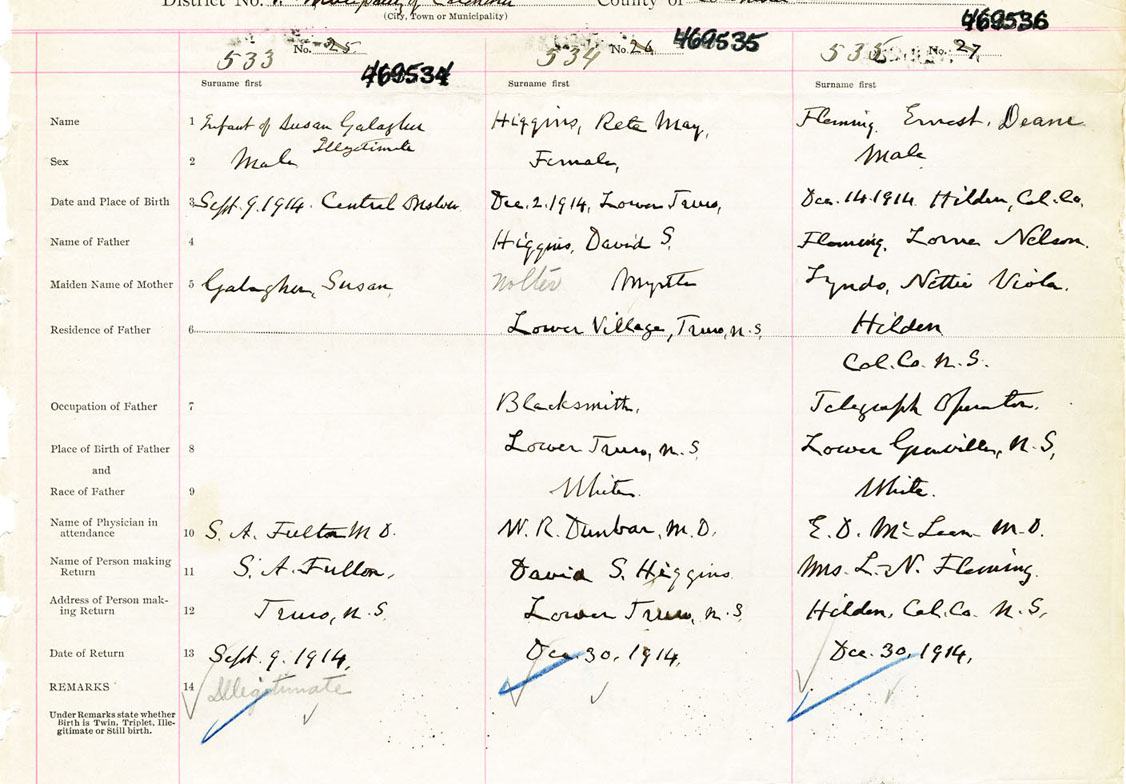 District No. 1. Municipality of Colchester County of
(City, Town or Municipality)
469536
469535
469534
533 No. 25
534 No. 26
535 No. 27
Surname first Surname first Surname first
Name 1 Infant of Susan Galagher Higgins, Reta May, Fleming, Ernest. Deane
Illegitimate
Sex 2 Male Female, Male
Date and Place of Birth 3 Sept. 9. 1914. Central Onslow Dec. 2. 1914, Lower Truro, Dec. 14. 1914 Hilden, Col. Co.
Name of Father 4 Higgins, David S. Fleming, Lorne Nelson.
Maiden Name of Mother 5 Galagher, Susan, Myrtle Lynds, Nettie Viola.
Residence of Father 6 Lower Village, Truro, N.S. Hilden
Col. Co. N.S.
Occupation of Father 7 Blacksmith, Telegraph Operator.
Place of Birth of Father 8 Lower Truro, N.S, Lower Granville, N.S,
and
Race of Father 9 White. White.
Name of Physician in
attendance 10 S. A. Fulton M.D. W. R. Dunbar, M.D. E. D. McLean M.D.
Name of Person making
Return 11 S. A. Fulton, David S. Higgins. Mrs. L. N. Fleming.
Address of Person mak-
ing Return 12 Truro, N.S. Lower Truro, N.S. Hilden, Col. Co. N.S,
Date of Return 13 Sept. 9. 1914, Dec. 30, 1914, Dec. 30, 1914,
REMARKS 14 Illegitimate
Under Remarks state whether
Birth is Twin, Triplet, Ille-
gitimate or Still birth.